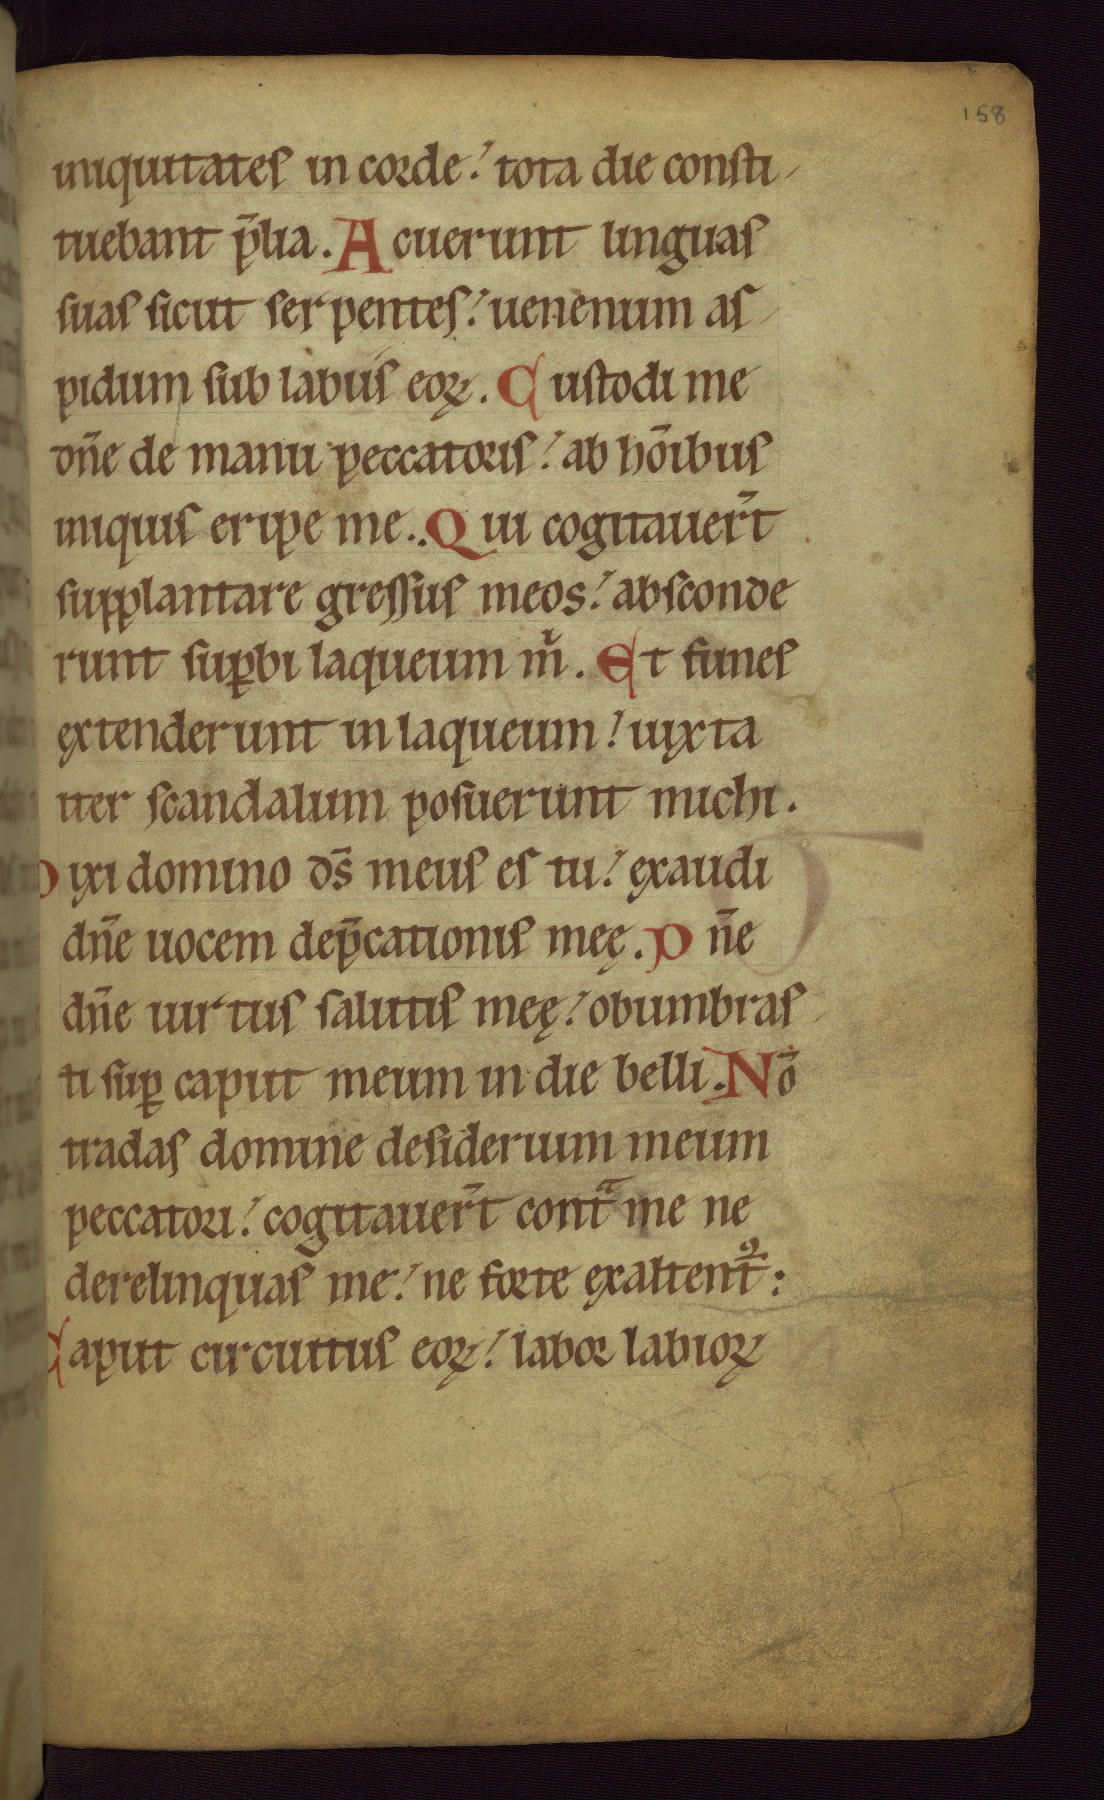 158
iniquitates in corde: tota die consti-
tuebant p̄lia. Acuerunt linguas
suas sicut serpentes: uenenum as-
pidum sub labiis eoꝝ. Custodi me
dn̄e de manu peccatoris: ab hōibus
iniquis eripe me. Qui cogitauer̄t
supplantare gressus meos: absconde
runt suꝑbi laqueum m̄. Et funes
extenderunt in laqueum: iuxta
iter scandalum posuerunt michi.
Dixi domino ds̄ meus es tu: exaudi
dn̄e uocem dep̄cationis meę. Dn̄e
dn̄e uirtus salutis meę: obumbras-
ti suꝑ caput meum in die belli. Nō
tradas domine desiderium meum
peccatori: cogitauer̄t contᵃ me ne
derelinquas me: ne forte exaltentᷣ:
Caput circuitus eoꝝ: labor labioꝝ